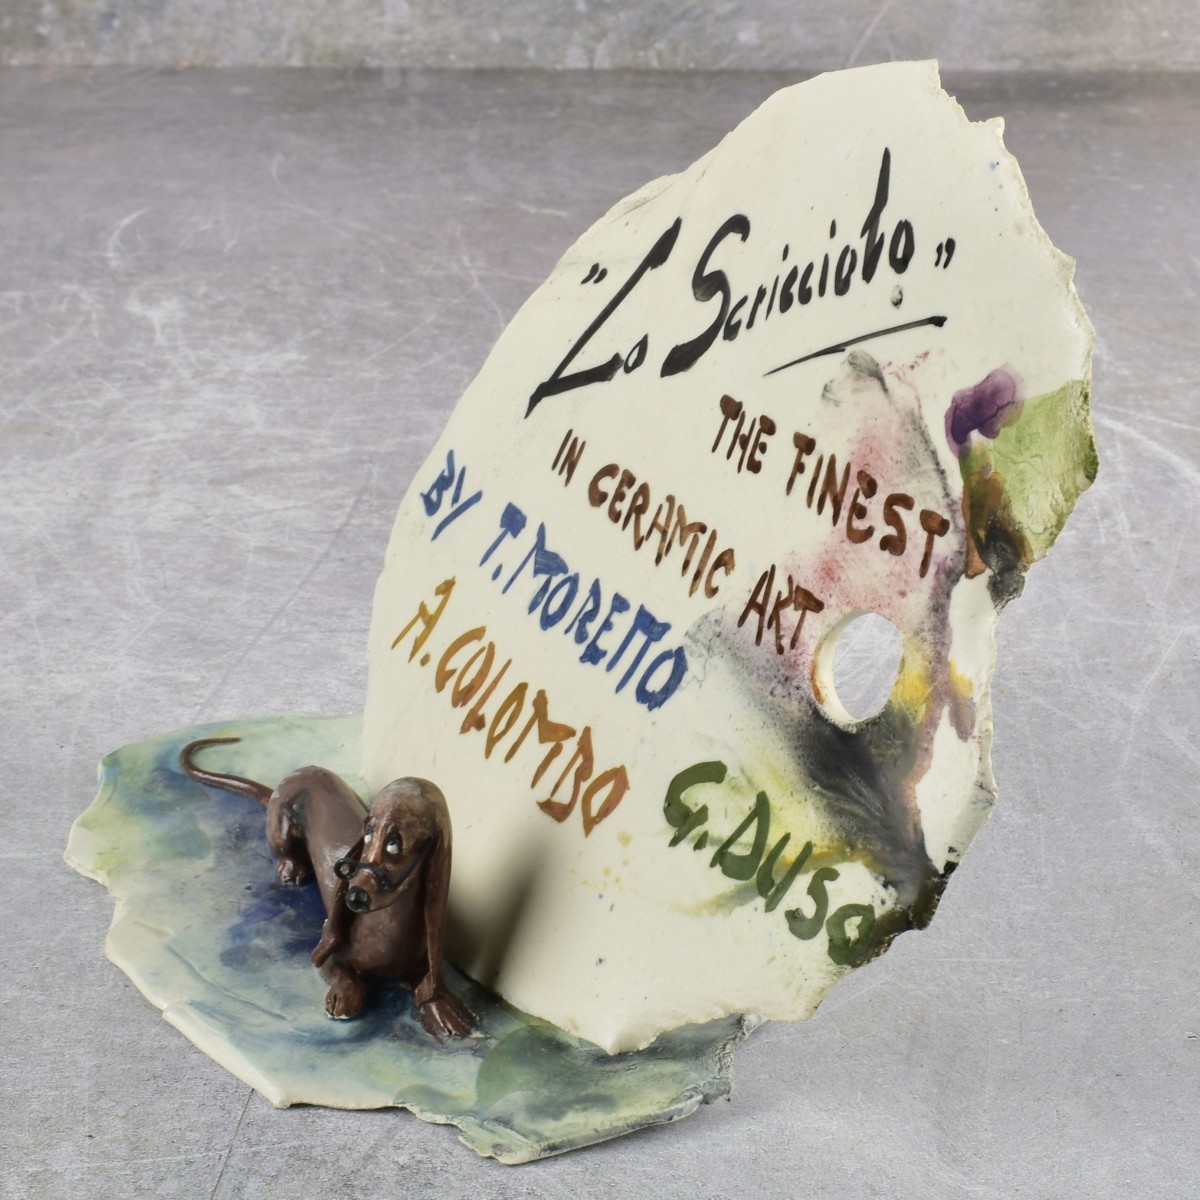 "Lo Scricciolo"
THE FINEST
IN CERAMIC ART
BY T. MORETTO
A. COLOMBO
G. DUSO